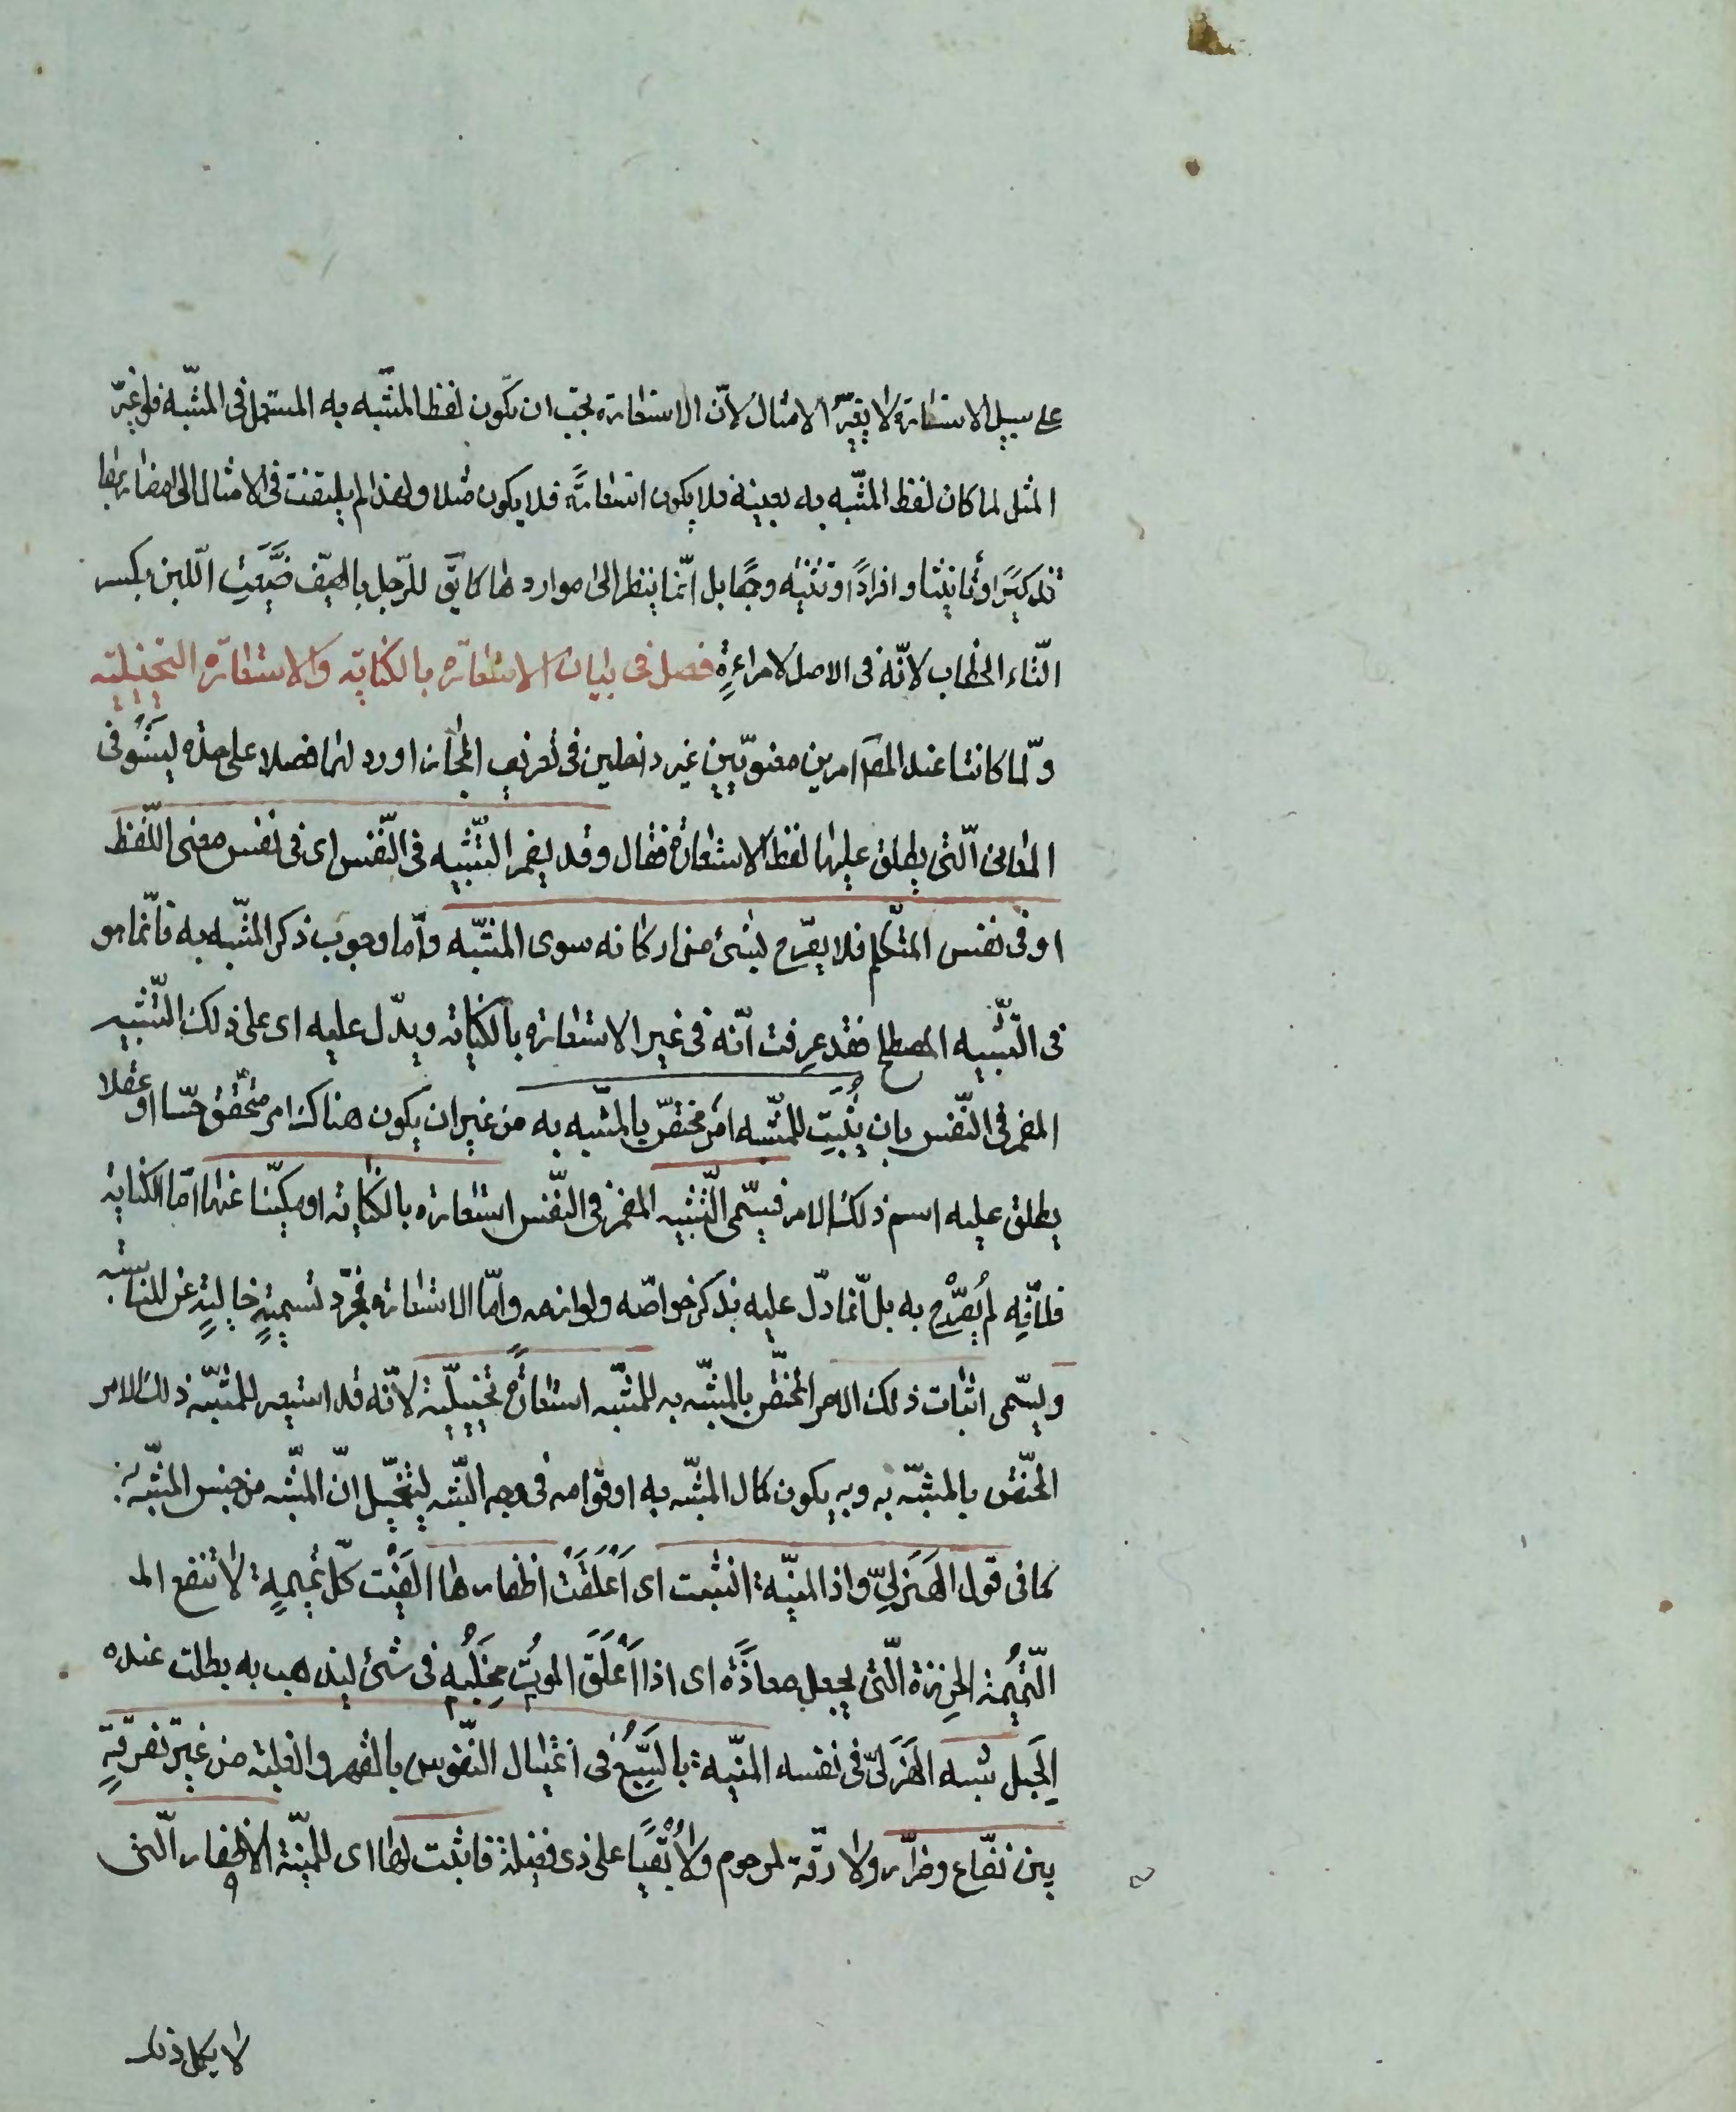 على سبيل الاستعارة لا يغيّر الامثال لانّ الاستعارة يجب ان يكون لفظ المشبّه به المستعمل فى المشبّه فلو غيّر
المثل لما كان لفظ المشبّه به بعينه فلا يكون استعارةً فلا يكون مثلا ولهذا لم يلتفت فى الامثال الى مضاربها
تذكيرًا وتأنيثا وافرادًا وتثنيه وجمعًا بل انّما ينظر الى مواردها كما يقّ للرّجل بالصّيف ضيّعتِ اللّبن بكسر
التّاء الخطاب لانّه فى الاصل لامراءةٍ فصل فى بيان الاستعارة بالكناية والاستعارة التخييلية
ولّما كانتا عند المصّ امرين معنويّين غير داخلين فى تعريف المجاز اورد لهما فصلا على حدة ليستوفى
المعانى الّتى يطلق عليها لفظ الاستعارة فقال وقد يضمر التّشبيه فى النّفس اى فى نفس معنى اللّفظ
او فى نفس المتكلّم فلا يصّرح بشئ من اركانه سوى المشبّه وامّا وجوب ذكر المشبّه به فانّما هو
فى التّشبيه المصطلح فقد عرفت انّه فى غير الاستعارة بالكناية ويدّل عليه اى على ذلك التّشبيه
المضمر فى النّفس بان يُثبَت للمشّبه امر مختصّ بالمشّبه به من غير ان يكون هناك امر متحّقق حسّا او عقلا
يطلق عليه اسم ذلك الامر فيسّمى التّشبيه المضمر فى النّفس استعارة بالكناية او مكنيّا عنها امّا الكناية
فلانّه لم يُصَرّح به بل انّما دلّ عليه بذكر خواصّه ولوازمه وامّا الاستعارة فمجرّد تسميةٍ خاليةٍ عن المناسبة
ويسّمى اثبات ذلك الامر المختصّ بالمشبّه به للمشّبه استعارةً تخييليّة لانّه قد استعير للمشبّه ذلك الامر
المختصّ بالمشبّه به وبه يكون كمال المشّبه به او قوامه فى وجه الشّبه ليتخيّل انّ المشّبه من جنس المشّبه به
كما فى قول الهَزَلِىّ واذا المنيّة انشبت اى اَعْلَقَتْ اظفارها الفَيْت كلّ تميمةٍ لا تنفع الـ
التّميُمة الخِرزة الّتى يجعل معاذَةً اى اذا اَعْلَقَ الموت مِخلَبه فى شئ ليذهب به بطلت عنده
الحِيل شبه الهَزَلىّ فى نفسه المنيّة بالسّبُعِ فى اغتيال النّفوس بالقهر والغلبة من غير تفرقةٍ
بين نفّاع وضرّار ولا رقّة لمرحوم ولا بُقْيًا على ذى فضيلة فاثبت لها اى للمنيّة الاظفار الّتى
لا يكمل ذلك